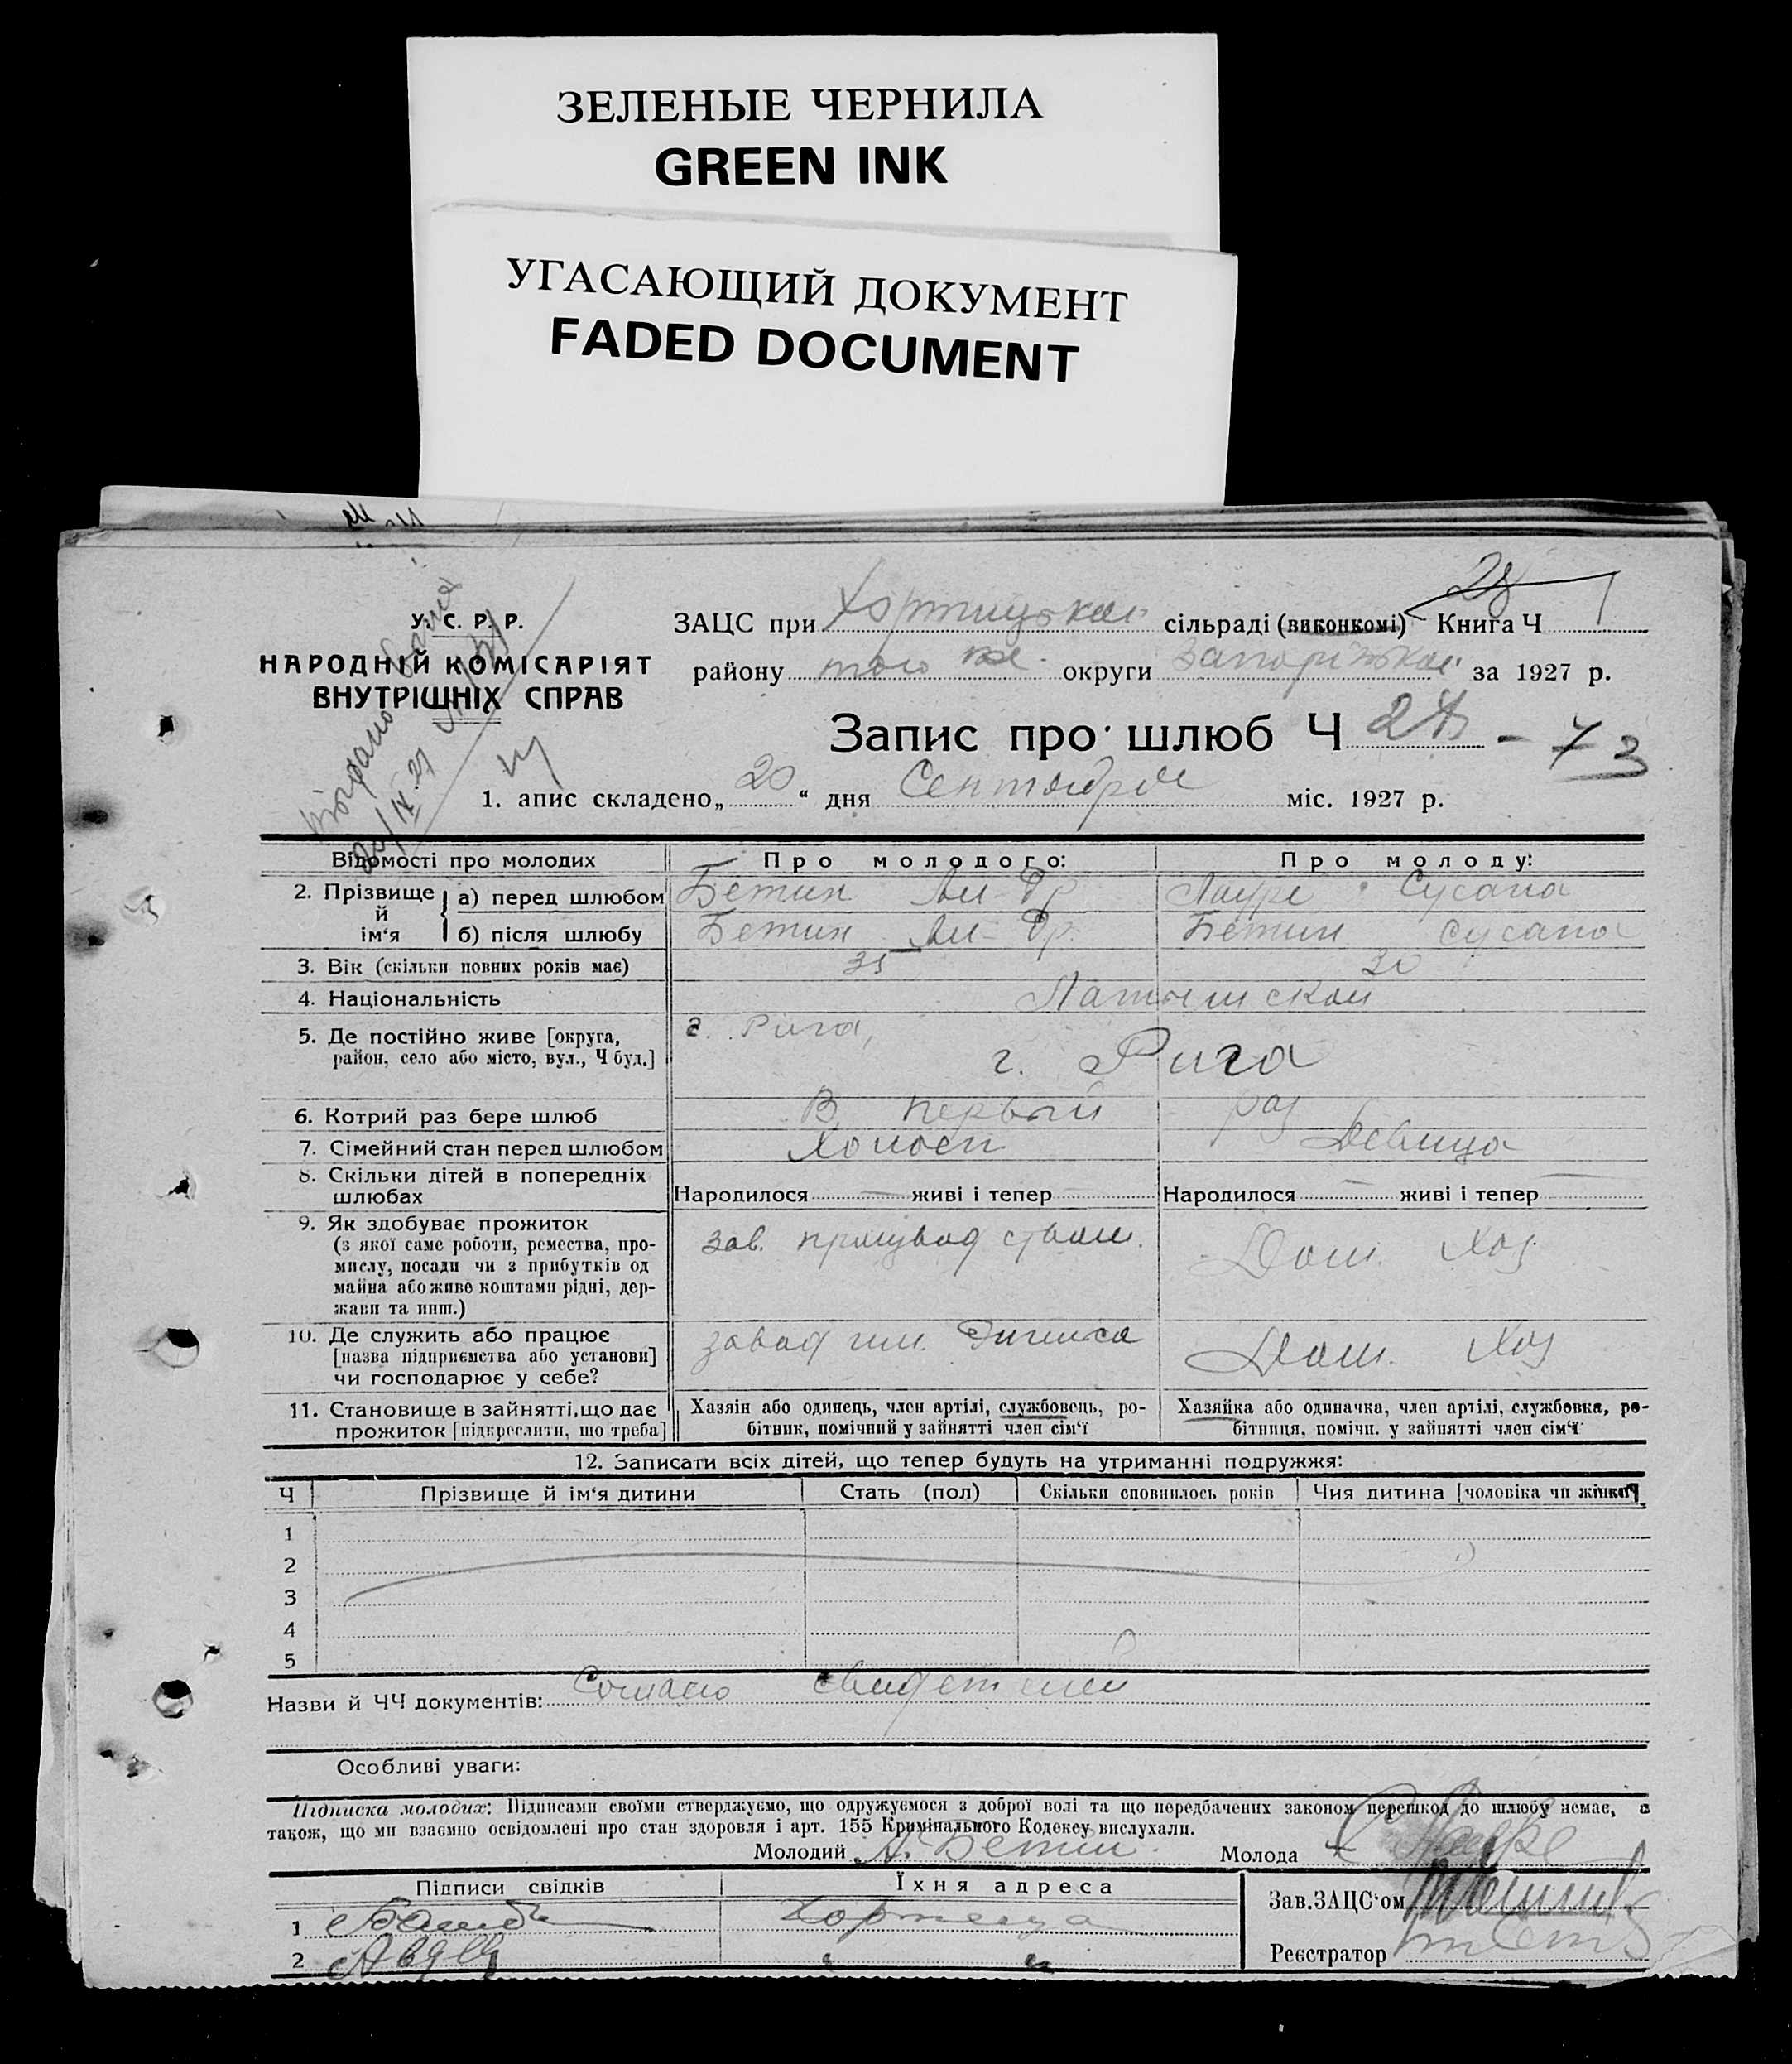 ЗЕЛЕНЫЕ ЧЕРНИЛА
GREEN INK
УГАСАЮЩИЙ ДОКУМЕНТ
FADED DOCUMENT
У. С. Р. Р.
НАРОДНІЙ КОМІСАРІЯТ
ВНУТРІШНІХ СПРАВ
28
ЗАЦС при Хортицькой сільраді (виконкомі) Книга Ч
району того же округи Запоріжской за 1927 р.
Запис про шлюб Ч 28 - 73
1. апис складено „20“ дня Сентября міс. 1927 р.
Відомості про молодих Про молодого: Про молоду:
2. Прізвище й ім‘я
а) перед шлюбом Бетин Сусана
б) після шлюбу Бетин Бетин Сусана
3. Вік (скільки повних років має) 35 30
4. Національність Латышской
5. Де постійно живе [округа, г. Рига,
район, село або місто, вул., Ч буд.] г. Рига
6. Котрий раз бере шлюб В первый раз
7. Сімейний стан перед шлюбом Холост Девица
8. Скільки дітей в попередніх
шлюбах Народилося — живі і тепер Народилося — живі і тепер —
9. Як здобуває прожиток
(з якої саме роботи, ремества, про-
мислу, посади чи з прибутків од
майна або живе коштами рідні, дер-
жави та инш.)
зав. производством. Дом. Хоз
10. Де служить або працює
[назва підприємства або установи]
чи господарює у себе?
завод им. Дом. Хоз
11. Становище в зайнятті, що дає
прожиток [підкреслити, що треба]
Хазяін або одинець, член артілі, службовець, ро-
бітник, помічний у зайнятті член сім‘ї
Хазяйка або одиначка, член артілі, службовка, ро-
бітниця, помічн. у зайнятті член сім‘ї
12. Записати всіх дітей, що тепер будуть на утриманні подружжя:
Ч Прізвище й ім‘я дитини Стать (пол) Скільки сповнилось років Чия дитина [чоловіка чи жінки]
1
2
3
4
5
Назви й ЧЧ документів: Согласно свидетелей
Особливі уваги:
Підписка молодих: Підписами своїми стверджуємо, що одружуємося з доброї волі та що передбачених законом перешкод до шлюбу немає, а
також, що ми взаємно освідомлені про стан здоровля і арт. 155 Кримінального Кодексу вислухали.
Молодий А. Бетин Молода
Підписи свідків Їхня адреса
Зав.ЗАЦС‘ом
1 Хортица
Реєстратор
2 " "